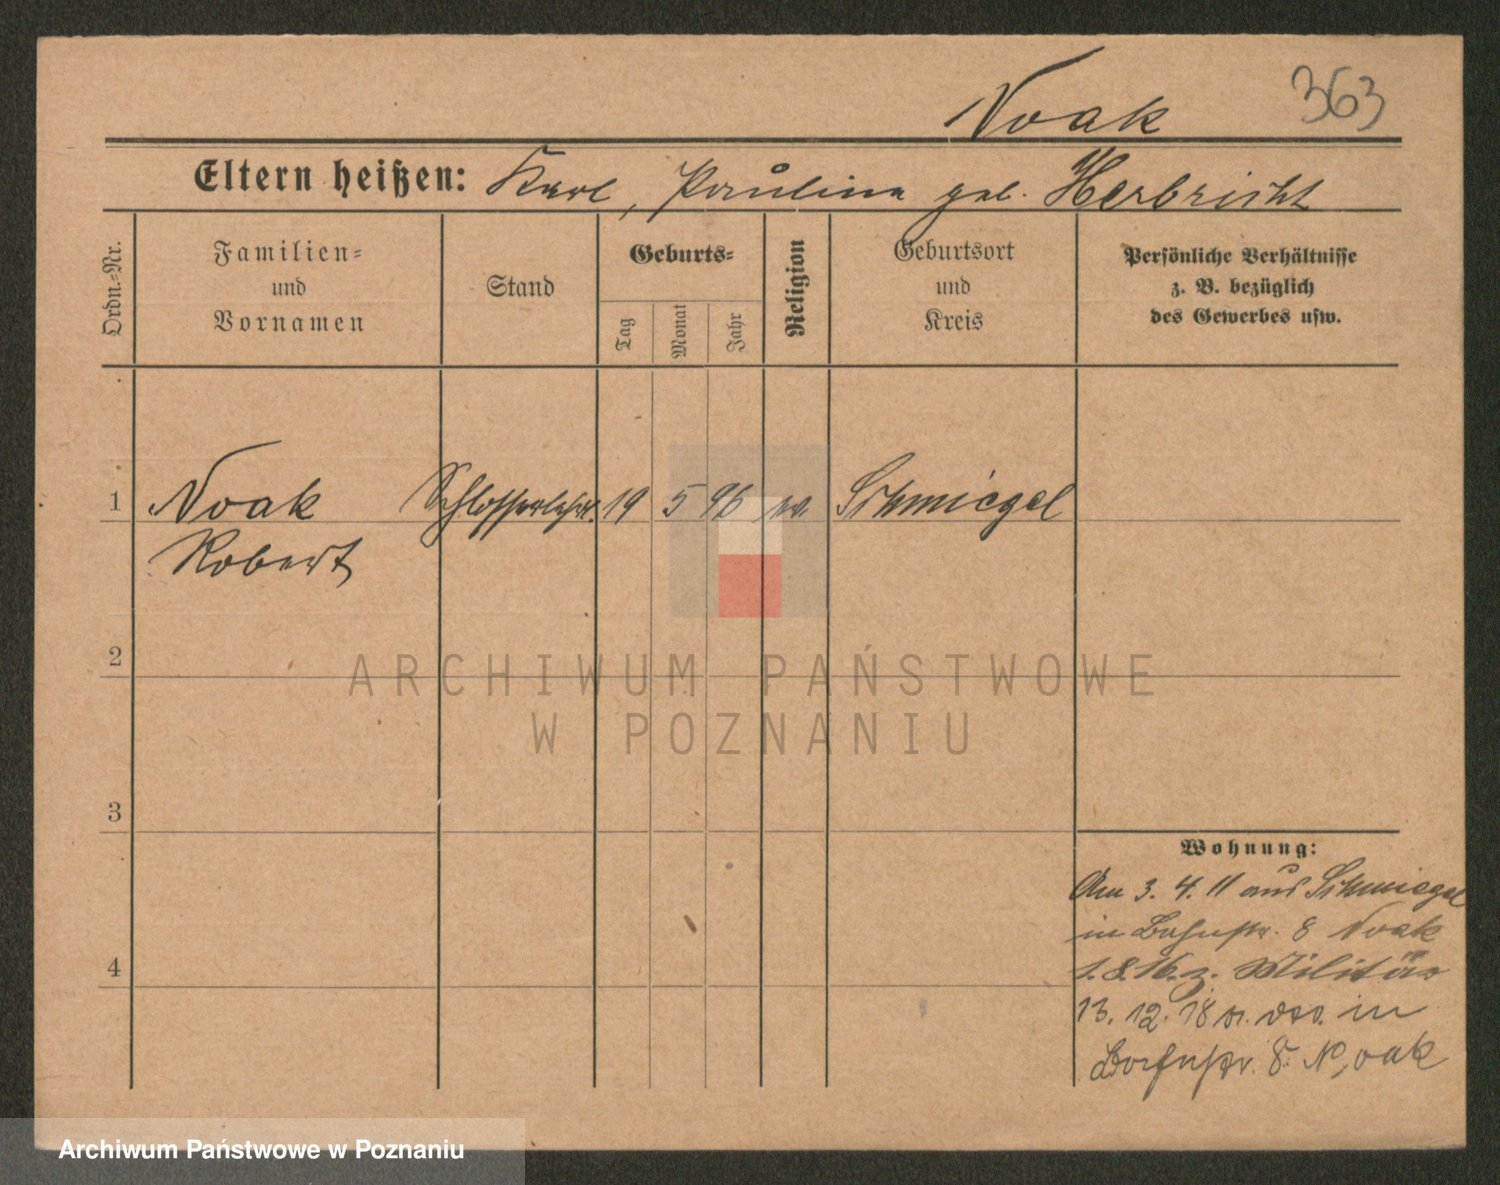 Noak 363
Eltern heißen: Karl, Paulina geb. Herbricht
Ordn.-Nr.
Familien-
und
Vornamen
Stand
Geburts-
Tag
Monat
Jahr
Religion
Geburtsort
und
Kreis
Persönliche Verhältnisse
z. B. bezüglich
des Gewerbes usw.
1 Noak Schlosserlehrl. 19 5 96 ev. Schmiegel
Robert
2
ARCHIWUM PAŃSTWOWE
W POZNANIU
3
Wohnung:
Am 3. 4. 11 aus Schmiegel
in Bahnstr. 8 Noak
1. 8. 16. z. Militär
13. 12. 18 v. in
Bahnstr. 8. Noak
4
Archiwum Państwowe w Poznaniu